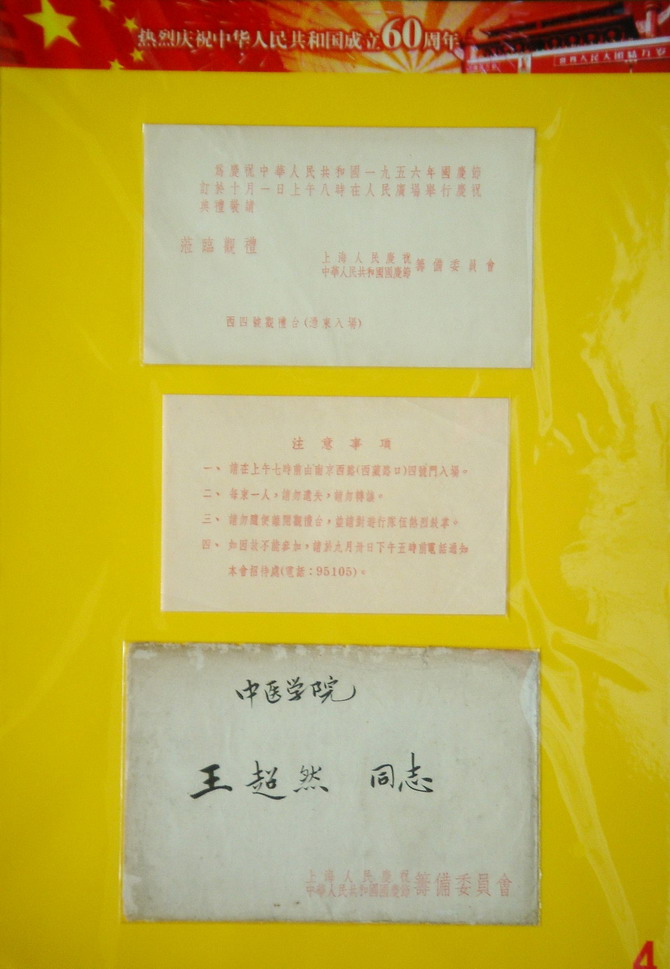 热烈庆祝中华人民共和国成立60周年
爲慶祝中華人民共和國一九五六年國慶節
訂於十月一日上午八時在人民廣場舉行慶祝
典禮敬請
莅臨觀禮
上海人民慶祝
中華人民共和國國慶節 籌備委員會
西四號觀禮台(憑柬入場)
注意事項
一、請在上午七時前由南京西路(西藏路口)四號門入場。
二、每柬一人，請勿遺失，請勿轉讓。
三、請勿隨便離開觀禮台，並請對遊行隊伍熱烈鼓掌。
四、如因故不能參加，請於九月卅日下午五時前電話通知
本會招待處(電話：95105)。
中医学院
王超然 同志
上海人民慶祝
中華人民共和國國慶節 籌備委員會
4